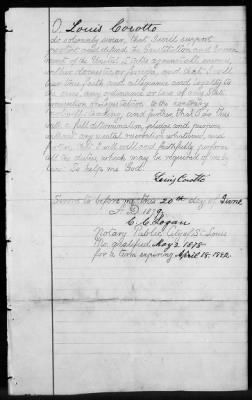 I, Louis Corotto
do solemnly swear, that I will support
protect and defend the Constitution and Govern-
ment of the United States against all enemies,
whether domestic or foreign, and that I will
bear true faith and allegiance and loyalty to
the same, any ordinance or law of any State
Convention or Legislature to the contrary
notwithstanding, and further that I do this
with a full determination, pledge and purpose
without any mental reservation whatever, and
further that I will well and faithfully perform
all the duties which may be required of me by
law. So help me God.
Louis Corotto
Sworn to before me this 20th day of June
A.D. 1879
C. C. Logan
Notary Public City of St Louis
Mo. qualified May 2 1878
for a term expiring April 18. 1882